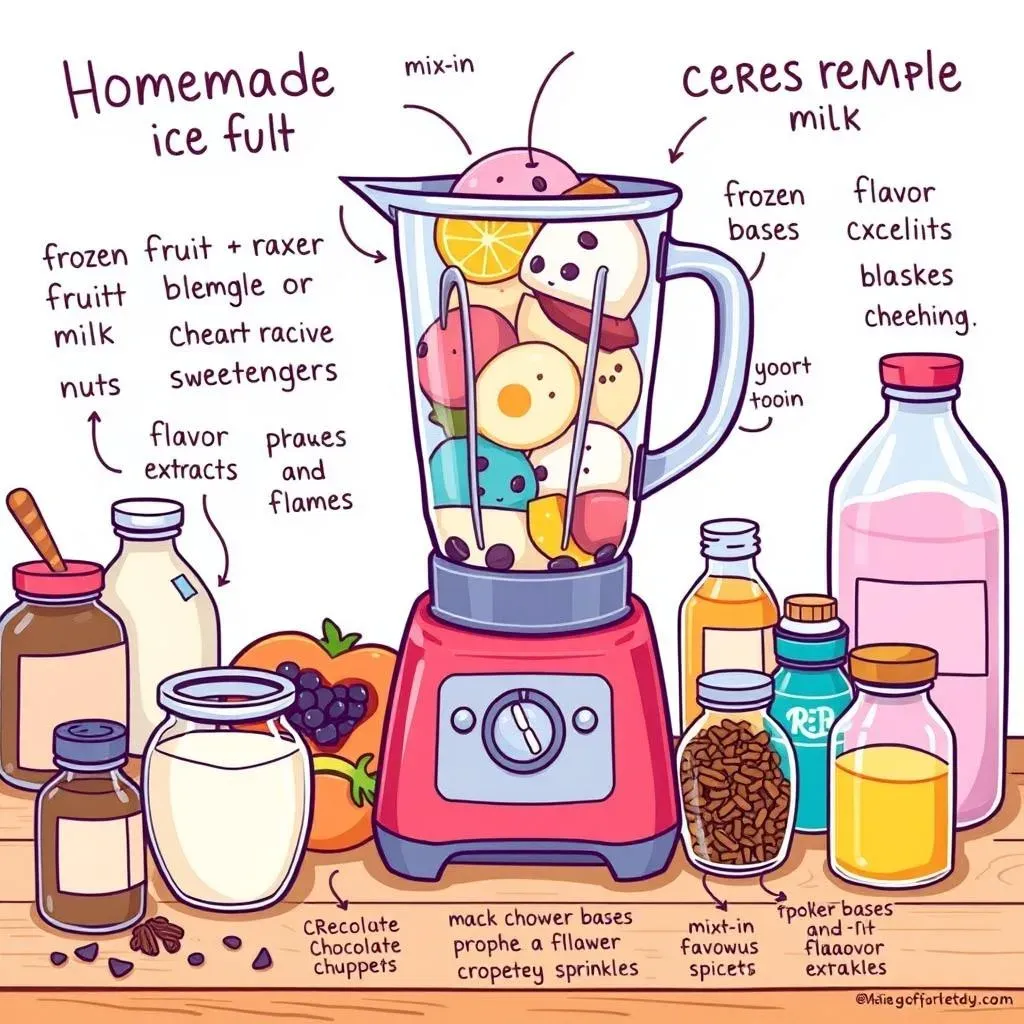 Homemade
ice fult
mix-in
CERES REMPLE
milk
frozen
fruitt
milk
nuts
fruit + raxer
blemgle or
Cheart racive
sweetengers
flavor
extracts
praues
and
flames
frozen
bases
flavor
cxceliits
blaskes
cheehing.
yoort
tooin
CRecolate
Chocolate
chuppets
mack chower bases
prophe a fllawer
cropetey sprinkles
mixt-in
favowus
spicets
rpoker bases
and-fit
flaaovor
extrakles